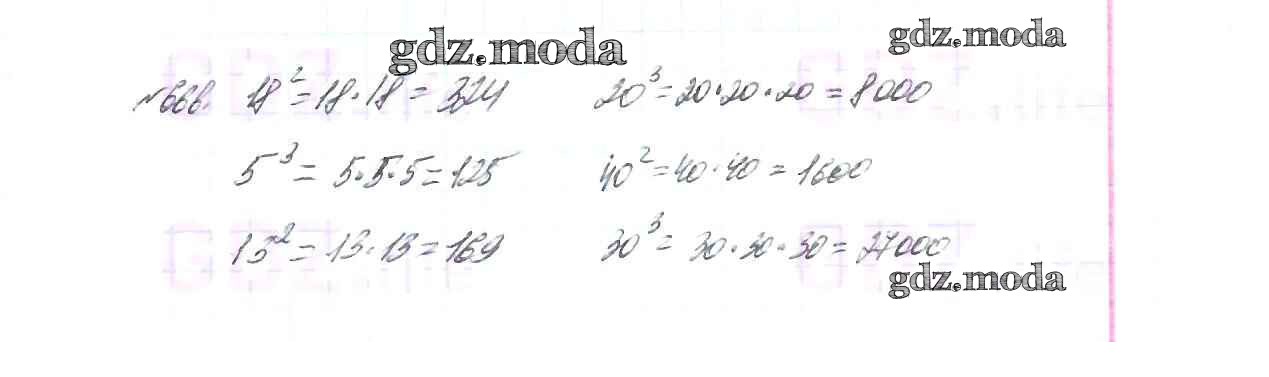 gdz.moda
gdz.moda
№666. 18² = 18·18 = 324 20³ = 20·20·20 = 8000
5³ = 5·5·5 = 125 40² = 40·40 = 1600
13² = 13·13 = 169 30³ = 30·30·30 = 27000
gdz.moda